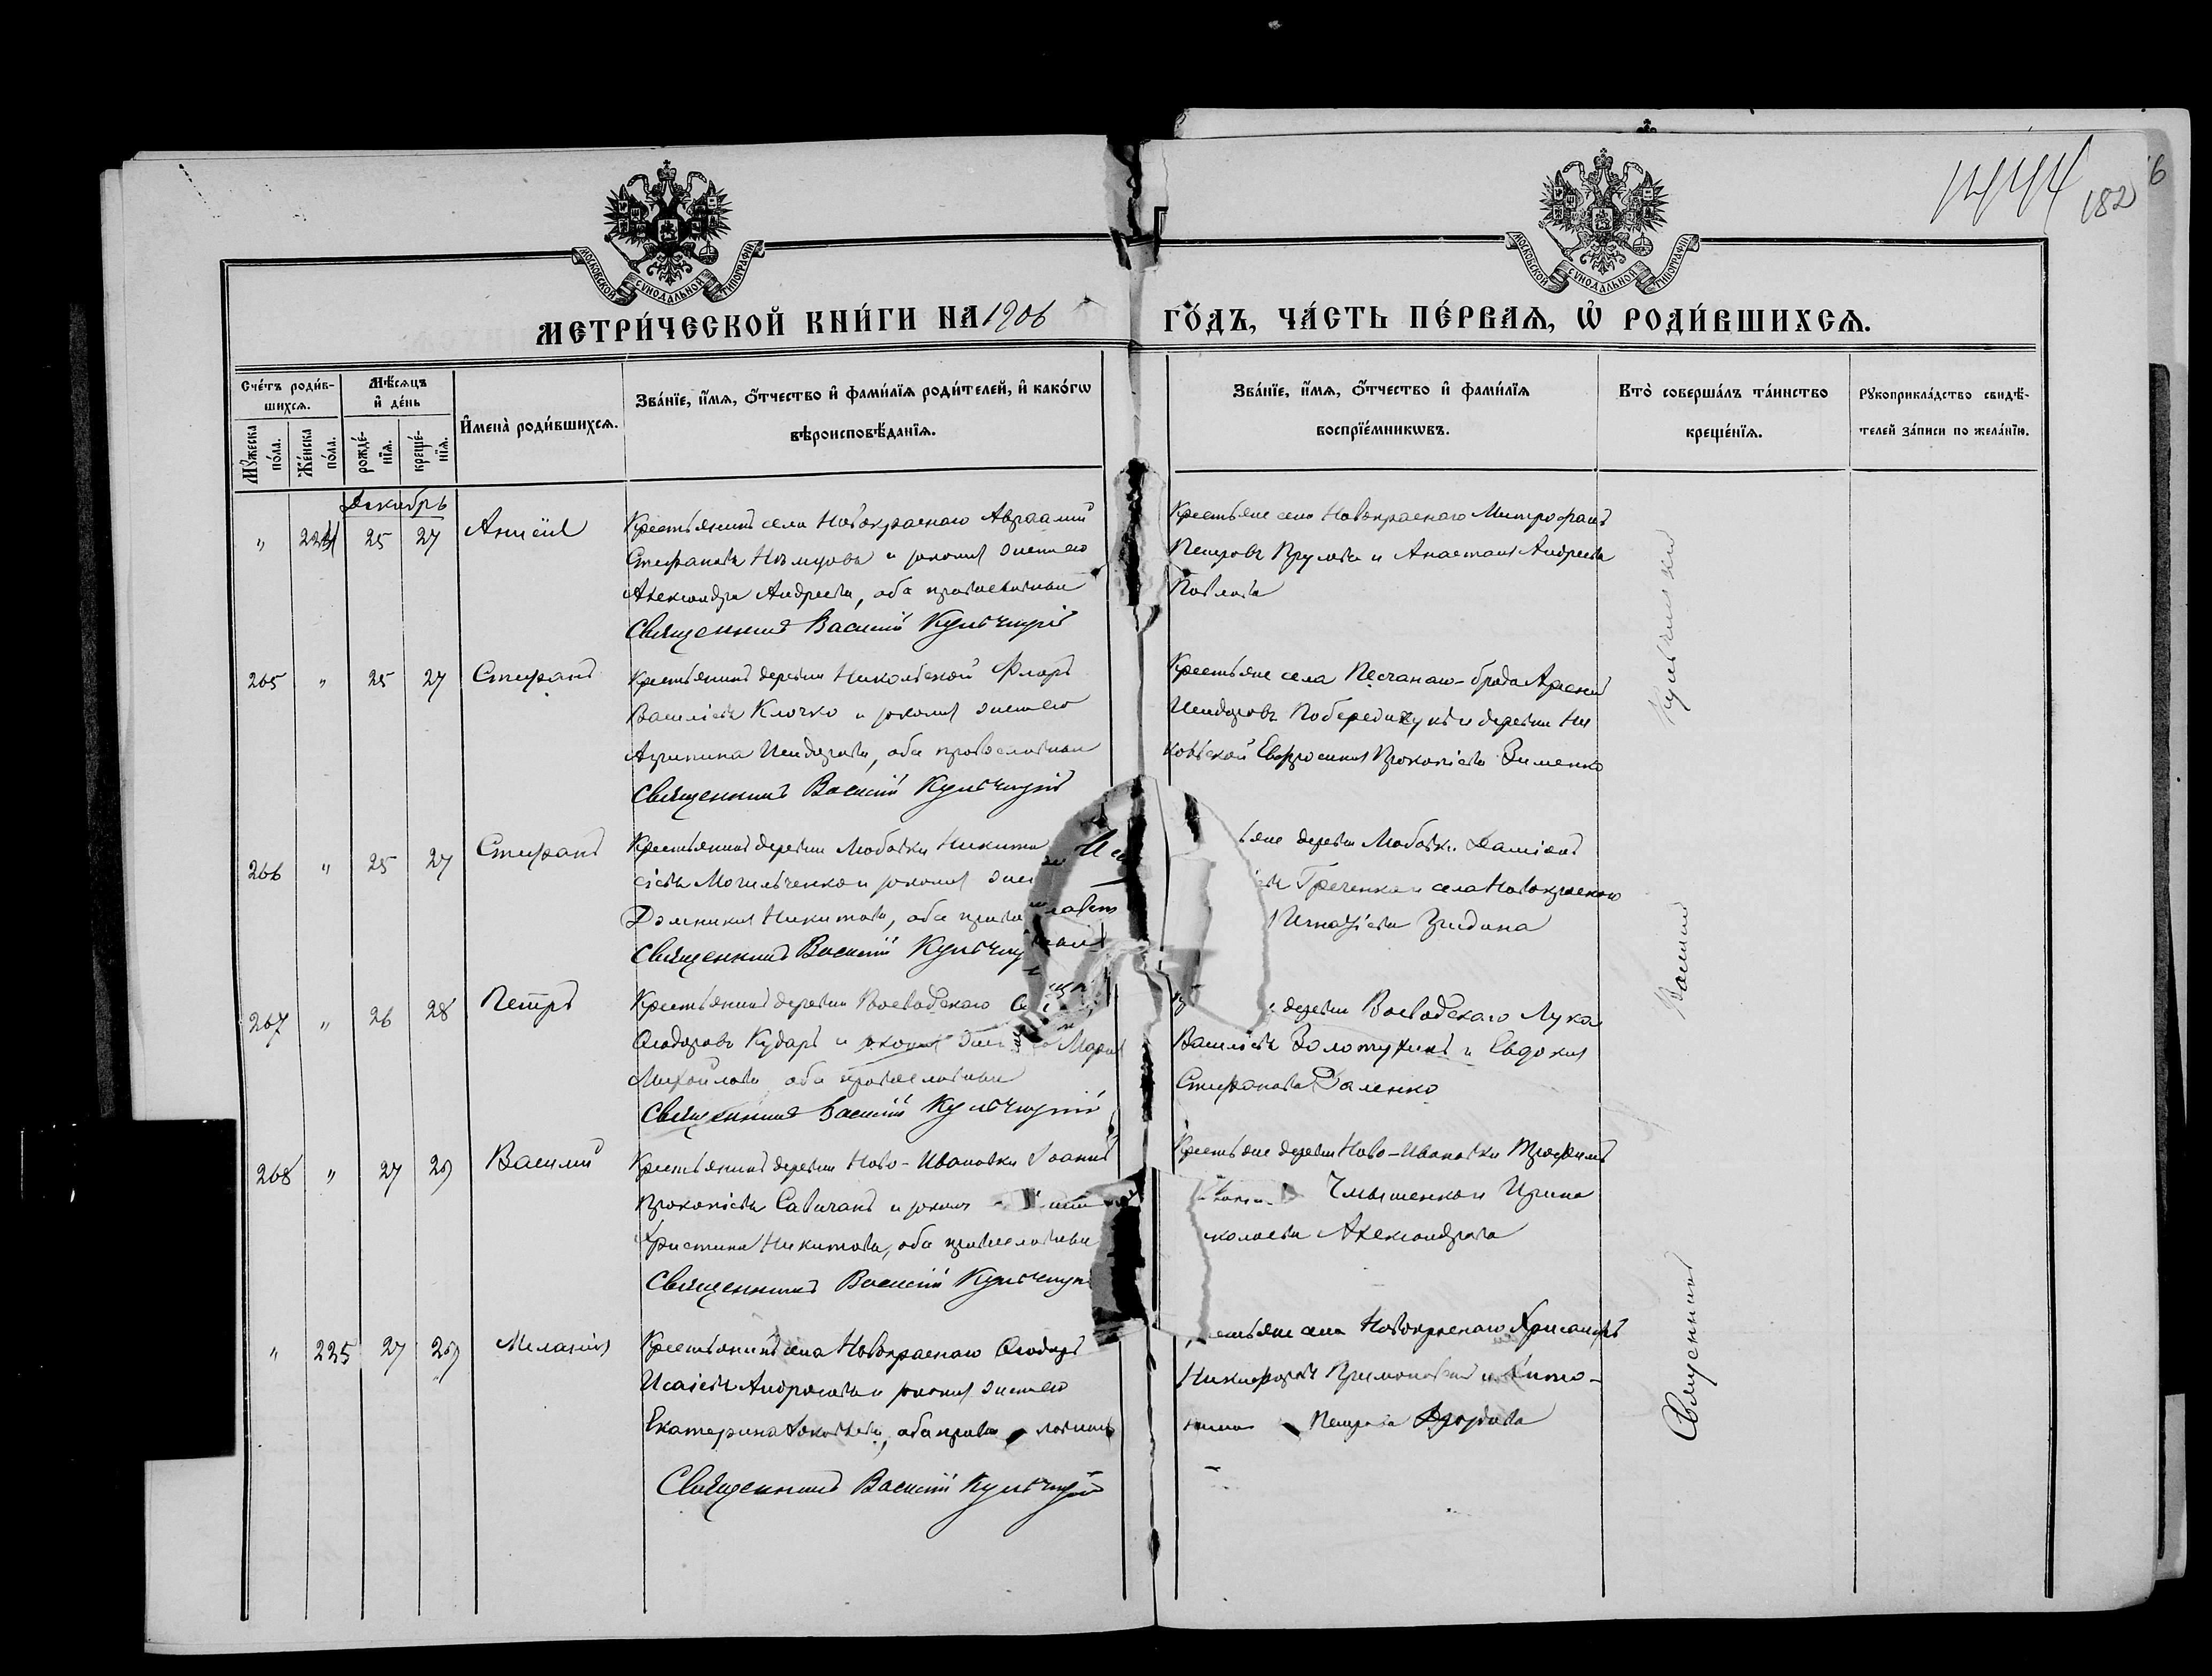 1444
182
6
МОСКОВСКОЙ СѴНОДАЛЬНОЙ ТИПОГРАФІИ
МОСКОВСКОЙ СѴНОДАЛЬНОЙ ТИПОГРАФІИ
МЕТРИ́ЧЕСКОЙ КНИ́ГИ НА 1906 ГО́ДЪ, ЧА́СТЬ ПЕ́РВАѦ, Ѡ҆ РОДИ́ВШИХСѦ.
Счéтъ роди́в-
шихсѧ.
Мꙋ́жеска по́ла.
Же́нска по́ла.
Мѣ́сѧцъ и҆ де́нь
рожде́-нїѧ.
креще́-нїѧ.
И҆мена̀ роди́вшихсѧ.
Зва́нїе, и҆́мѧ, ѻ҆́тчество и҆ фами́лїѧ роди́телей, и҆ како́гѡ
вѣроисповѣ́данїѧ.
Зва́нїе, и҆́мѧ, ѻ҆́тчество и҆ фами́лїѧ
воспрїе́мникѡвъ.
Кто̀ соверша́лъ та́инство
креще́нїѧ.
Рꙋкоприкла́дство свидѣ́-
телей за́писи по жела́нїю.
Декабрь
" 224 25 27 Анисія
Крестьянинъ села Новокраснаго Авраамій
Стефановъ и законная жена его
Александра Андреева, оба православные
Священникъ Василій Кульчицкій
Крестьяне села Новокраснаго Митрофанъ
Петровъ и Анастасія Андреева
Павлова
265 " 25 27 Стефанъ
Крестьянинъ деревни Никольской Флоръ
Васильевъ Клочко и законная жена его
Агрипина Исидорова, оба православные
Священникъ Василій Кульчицкій
Крестьяне села Песчанаго-брода
Исидоровъ и деревни Ни
кольской Евфросинія Прокопіева Зименко
266 " 25 27 Стефанъ
Крестьянинъ деревни Любовки Никита
сіевъ Могильченко и законная жена
Домникія Никитова, оба право
Священникъ Василій Кульчиц
ьяне деревни Любовки Даміанъ
Греченко и села Новокраснаго
Игнатіева
267 " 26 28 Петръ
Крестьянинъ деревни Воеводскаго
Ѳеодоровъ Кударь и законная Марія
Михайлова, оба православные
Священникъ Василій Кульчицкій
деревни Воеводскаго Лука
Васильевъ Золотухинъ и Евдокія
Стефанова Даленко
268 " 27 29 Василій
Крестьянинъ деревни Ново-Ивановки Іоаннъ
Прокопіевъ Савичанъ и законн
Христина Никитова, оба православные
Священникъ Василій Кульчицк
Крестьяне деревни Ново-Ивановки Трофимъ
Чмышенко и Ирина
иколаева Александрова
" 225 27 29 Меланія
Крестьянинъ села Новокраснаго Ѳеодоръ
Исаіевъ Андросовъ и законная жена его
Екатерина Яковлева, оба право славные
Священникъ Василій Кульчицкій
естьяне села Новокраснаго Хрисанфъ
Никифоровъ и Анто-
нина Петрова
Священникъ Василій Кульчицкій